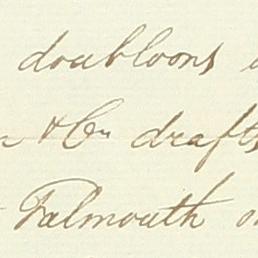 doubloons
& Co drafts
Falmouth